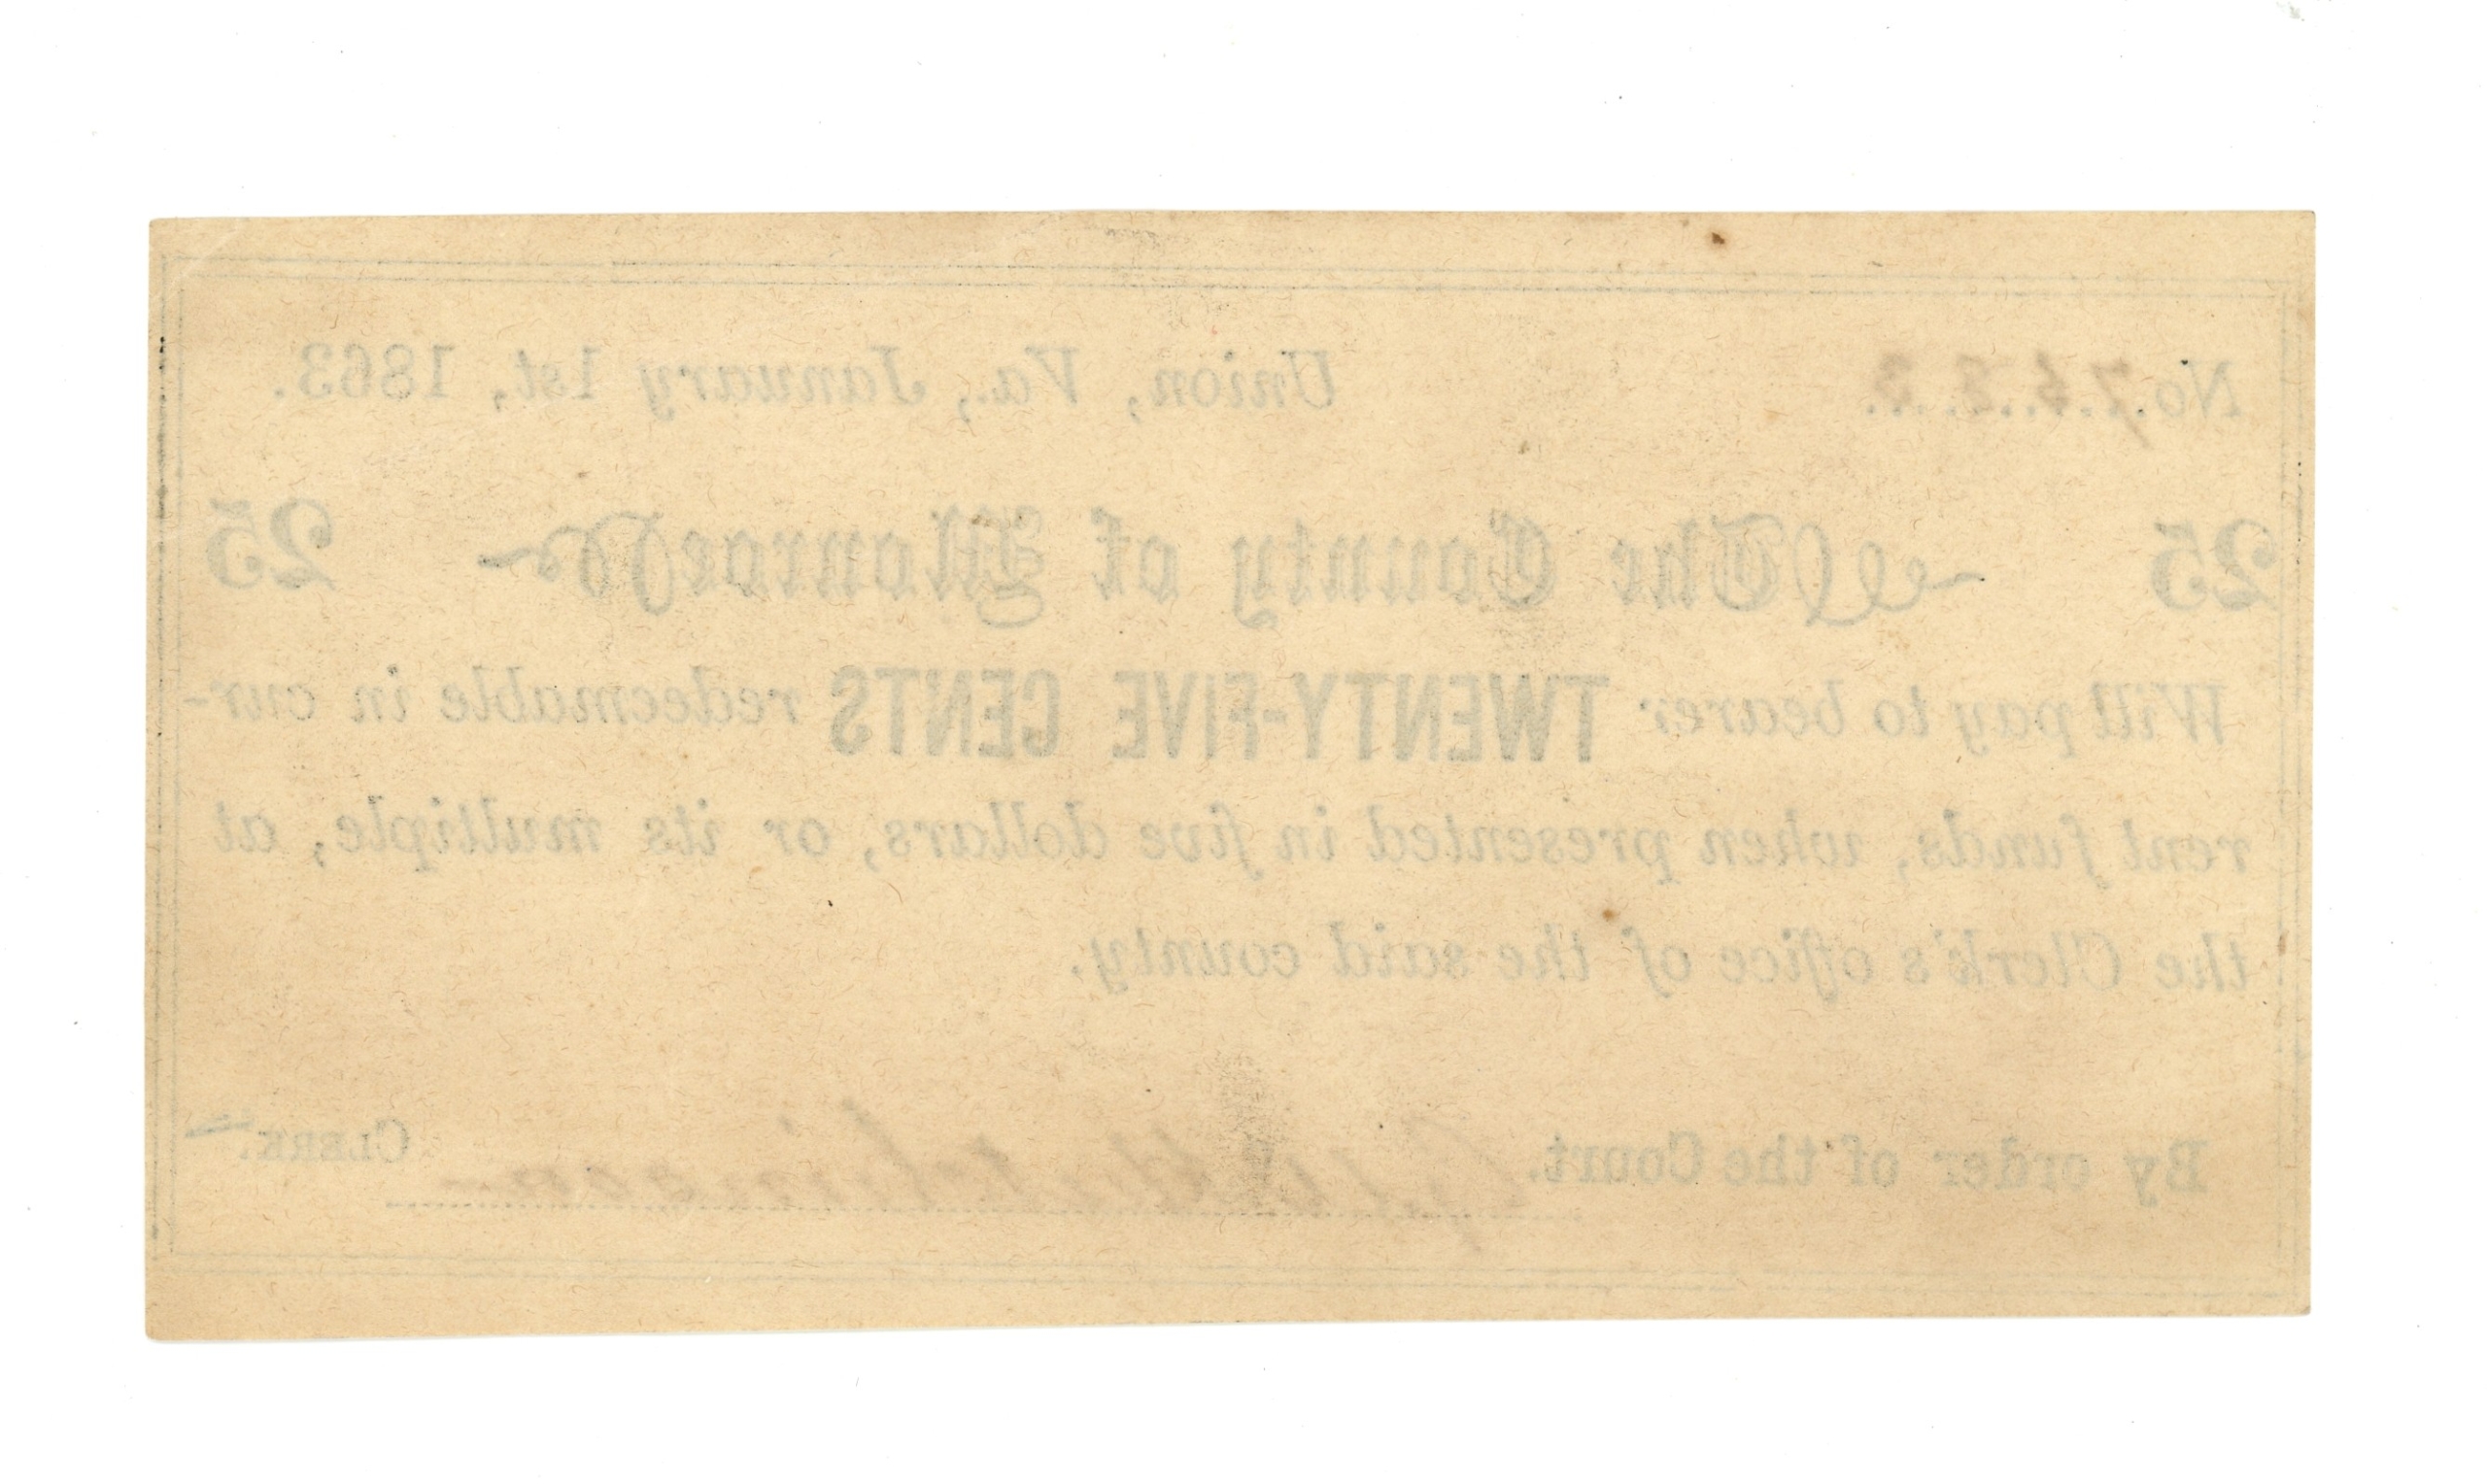 No. 7633 Union, Va., January 1st, 1863.
25 The County of Monroe 25
Will pay to bearer TWENTY-FIVE CENTS redeemable in cur-
rent funds, when presented in five dollars, or its multiple, at
the Clerk's office of the said county.
By order of the Court. Hutchinson CLERK.